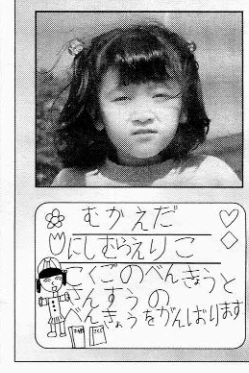 むかえだ
にしむらえりこ
こくごのべんきょうと
さんすうの
べんきょうをがんばります